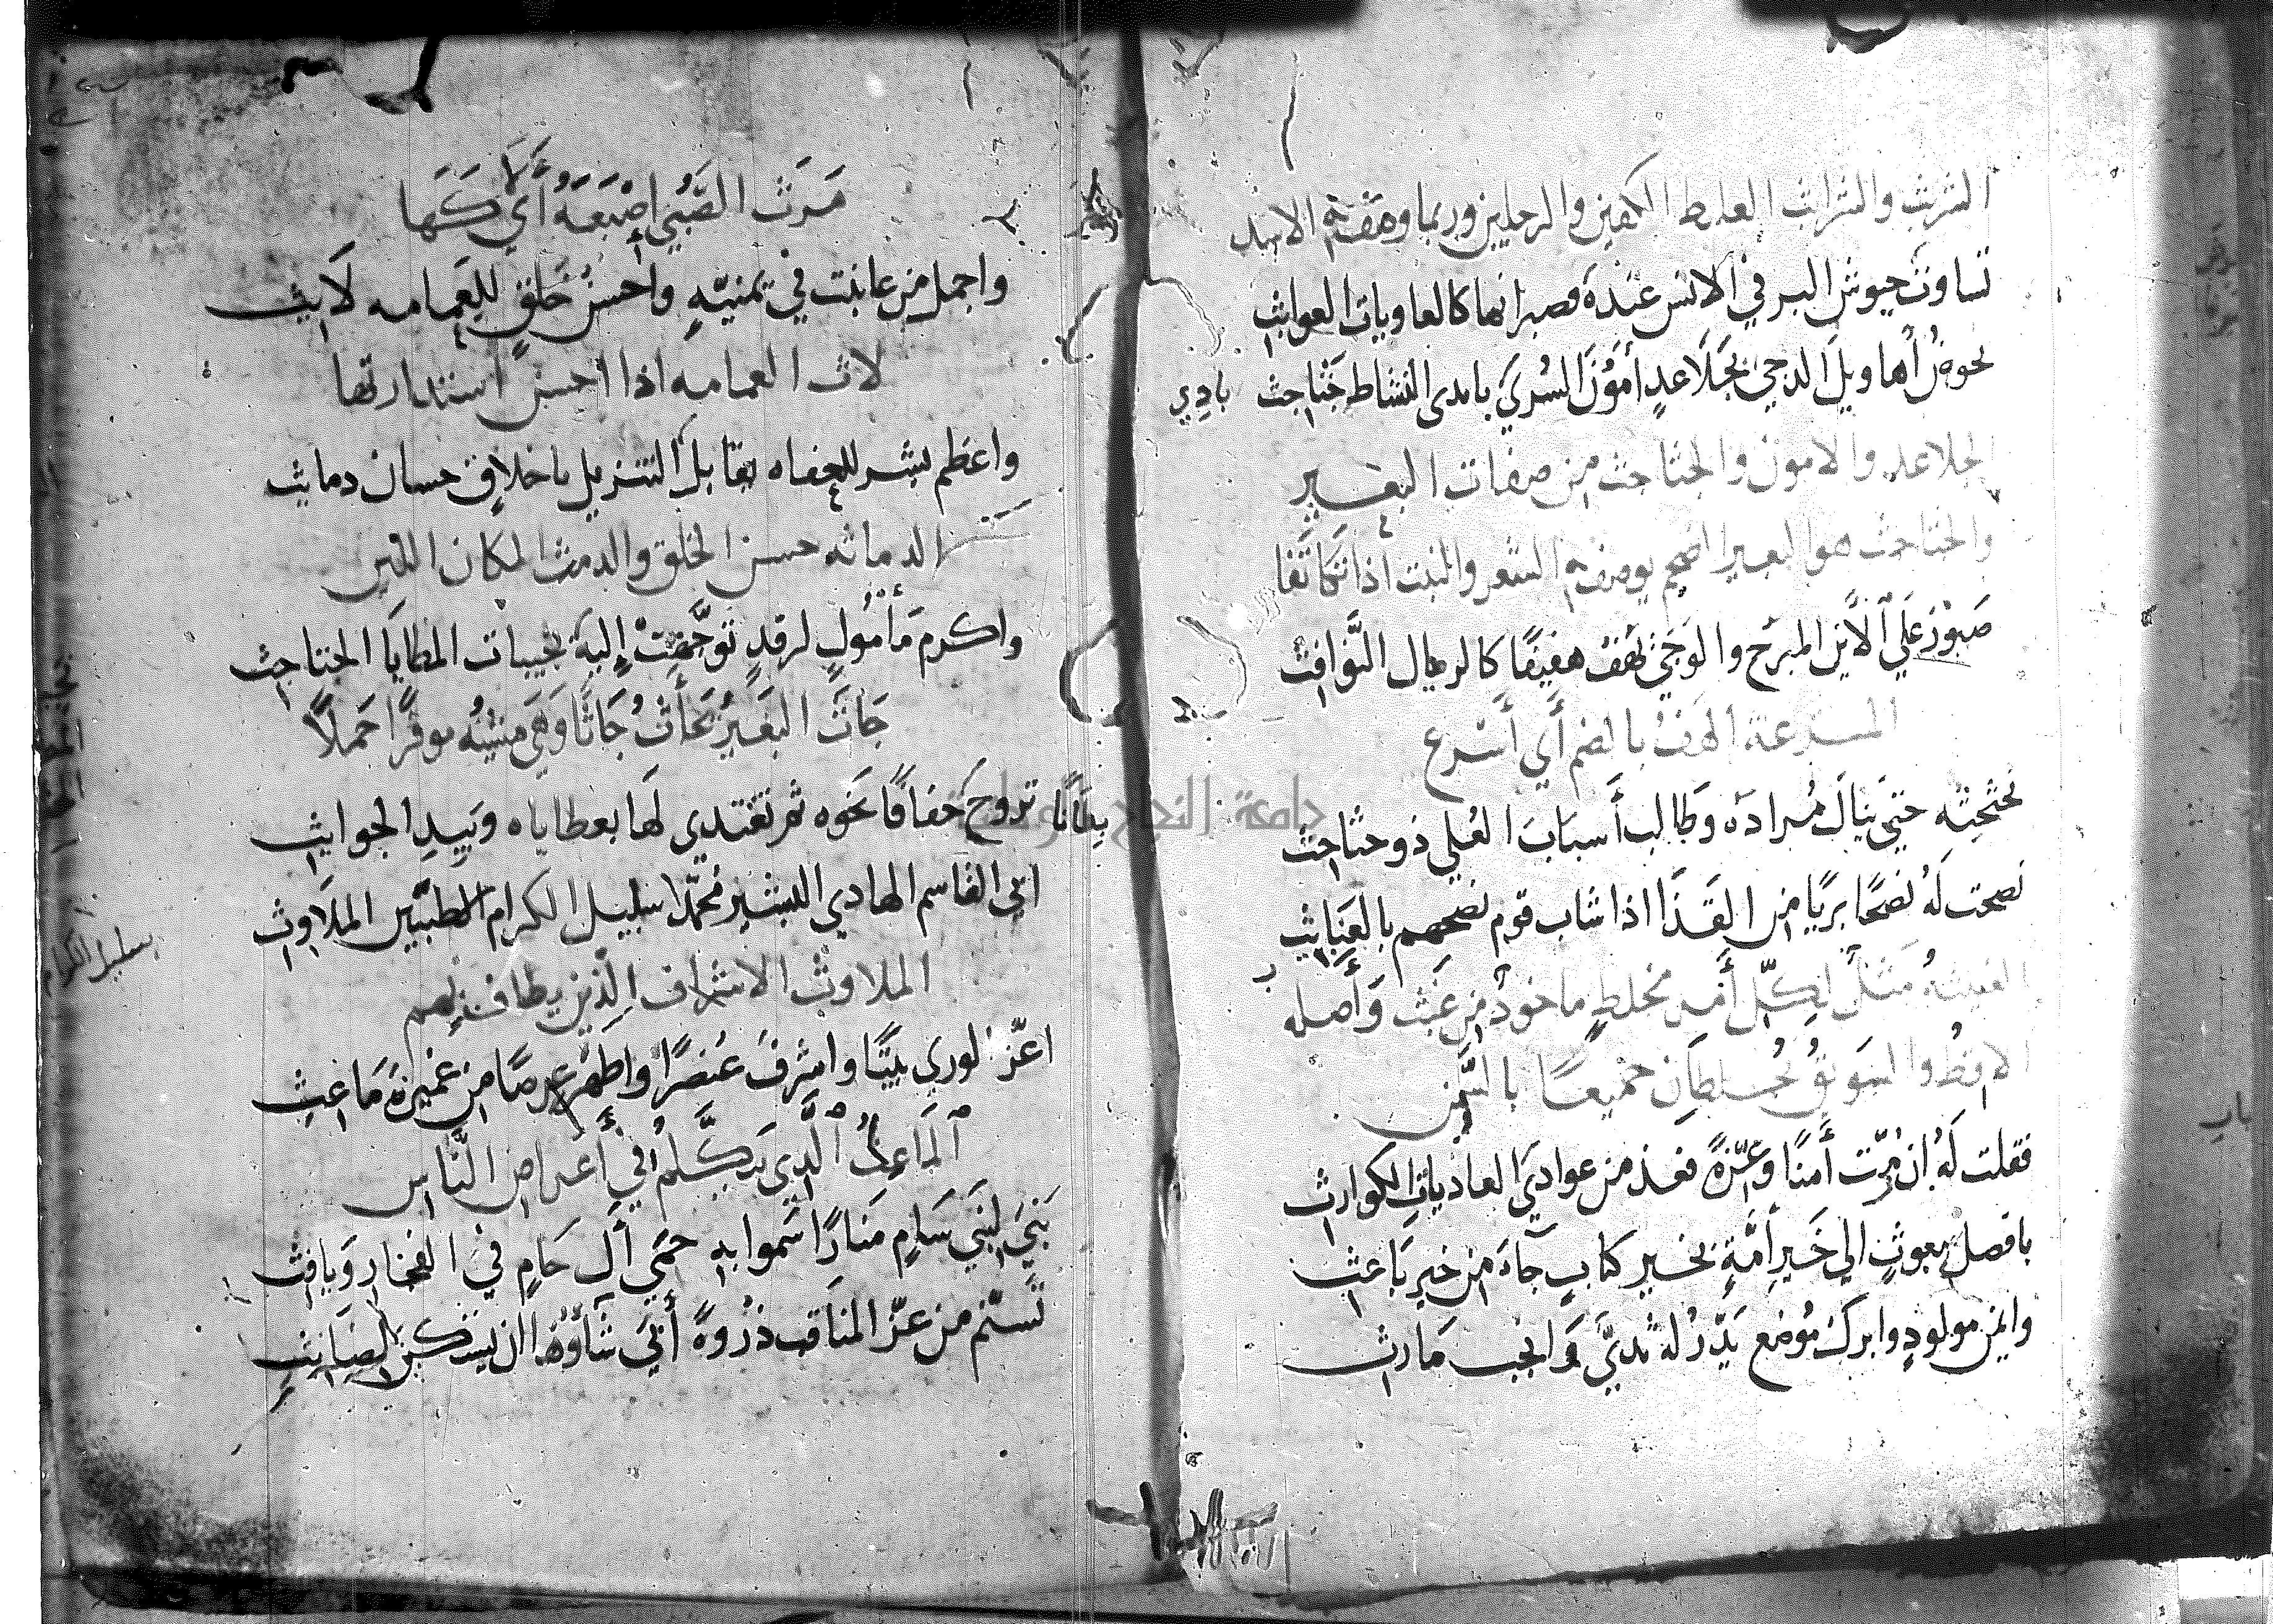 الشرنبث والشرابث الغليظ الكفين والرجلين وربما وصف به الاسد
تساوت جيوش البر في الانس عنده وصبرانها كالعاويات العوابث
يخوض أهاويل الدجى بجلاعد أمون السرى بادى النشاط خثاجث بادي
الجلاعد والامون والخثاجث من صفات البعير
والخثاجث هو البعير الضخم يوصف به الشعر والنبت اذا تكاثفا
صبور على الأين المبرح والوجى يهف هفيفا كالرعال النوافث
المسرعة الهف بالضم أي أسرع
يحثحثه حتى ينال مراده وطالب أسباب العلى ذو حثاحث
نصحت له نصحا بريا من القذا اذا شاب قوم نصحهم بالغبايث
الغبيثة مثل لكل أمر مخلط ماخوذ من غبث وأصله
الاقط والسويق يخلطان جميعا بالسمن
فقلت له ان رمت أمنا وعزة فعذ من عوادي العاديات الكوارث
بافضل مبعوث الي خير أمة بخير كتاب جاء من خير باعث
وايمن مولود وابرك موضع يدر له ثدي
مرث الصبي إصبعه أي لاكها
واجمل من عاينت في يمنيه وأحسن خلق للعمامه لايث
لاث العمامه اذا احسن استدارتها
واعظم بشر للعفاه تقابل النزيل باخلاق حسان دمايث
الدماثه حسن الخلق والدمث المكان اللين
واكرم مأمول لرفد توجهت إليه نجيبات المطايا الجثاجث
جاث البعير يجأث جاثا وهي مشيته موقرا حملا
بطانا تروح خفافا نحوه ثم تغتدي لها بعطاياه وييد الجوايث
ابي القاسم الهادي البشير محمد سليل الكرام الطيبين الملاوث
سليل الكرام
الملاوث الاشراف الذين يطاف بهم
اعز الوري بيتا واشرف عنصرا واطهر عرضا من غميزة ماغث
الماغث الذي يتكلم في أعراض الناس
بنى لبني سام منارا سموا به حمى أل حام في الفخار ويافث
تسنم من عز المناقب ذروة أبى شأوها ان